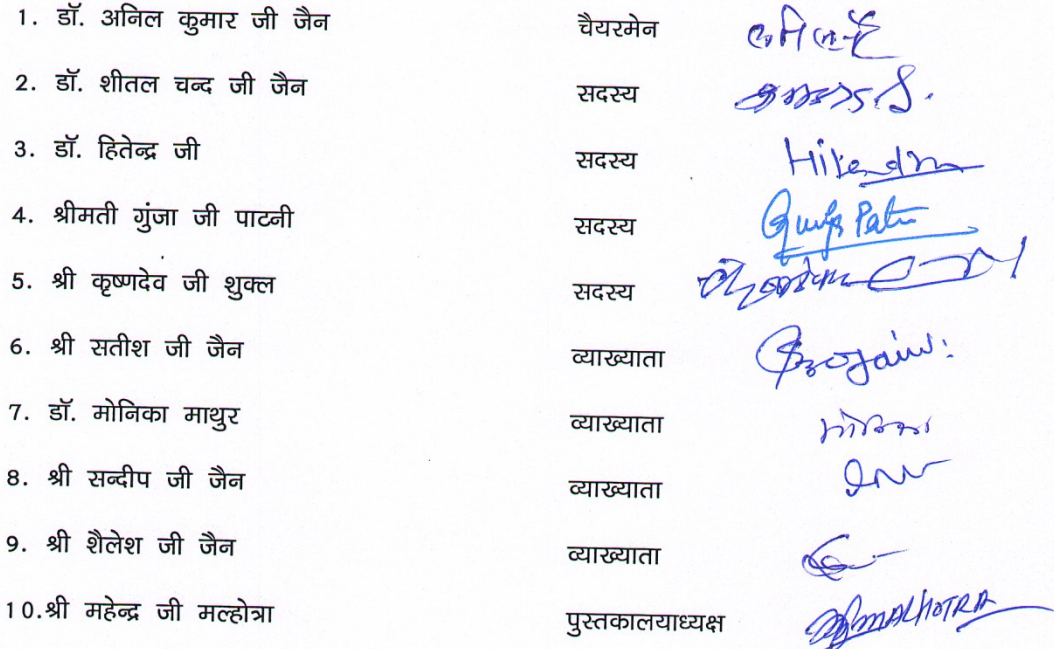 1. डॉ. अनिल कुमार जी जैन चैयरमेन
2. डॉ. शीतल चन्द जी जैन सदस्य
3. डॉ. हितेन्द्र जी सदस्य Hitendra
4. श्रीमती गुंजा जी पाटनी सदस्य
5. श्री कृष्णदेव जी शुक्ल सदस्य
6. श्री सतीश जी जैन व्याख्याता Jain
7. डॉ. मोनिका माथुर व्याख्याता मोनिका
8. श्री सन्दीप जी जैन व्याख्याता
9. श्री शैलेश जी जैन व्याख्याता
10.श्री महेन्द्र जी मल्होत्रा पुस्तकालयाध्यक्ष MALHOTRA